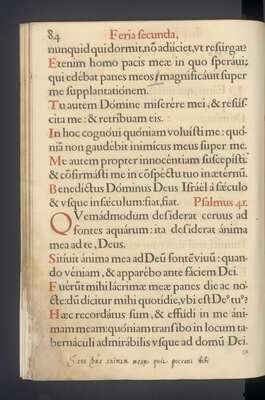 84 Feria secunda,
nunquid qui dormit, nō adiiciet, vt resurgat?
Etenim homo pacis meæ in quo speráui;
qui edébat panes meos, magnificáuit super
me supplantatiónem.
Tu autem Dómine miserére mei, & resúſ-
cita me: & retríbuam eis.
In hoc cognóui quóniam voluísti me: quó-
niā non gaudébit inimícus meus super me.
Me autem propter innocéntiam suscepísti:
& cōfirmásti me in cōspéctu tuo in ætérnū.
Benedíctus Dóminus Deus Israél à sæculo
& vsque in sæculum: fiat, fiat. Psalmus 41.
QVemádmodum desíderat ceruus ad
fontes aquárum: ita desíderat ánima
mea ad te, Deus.
Sitíuit ánima mea ad Deū fontē viuū: quan-
do véniam, & apparébo ante fáciem Dei.
Fuérūt mihi lácrimæ meæ panes die ac no-
cte: dū dícitur mihi quotídie, vbi est Deº tuº?
Hæc recordátus sum, & effúdi in me áni-
mam meam: quóniam transíbo in locum ta-
bernáculi admirábilis vsque ad domū Dei.
animam meam quia peccaui tibi